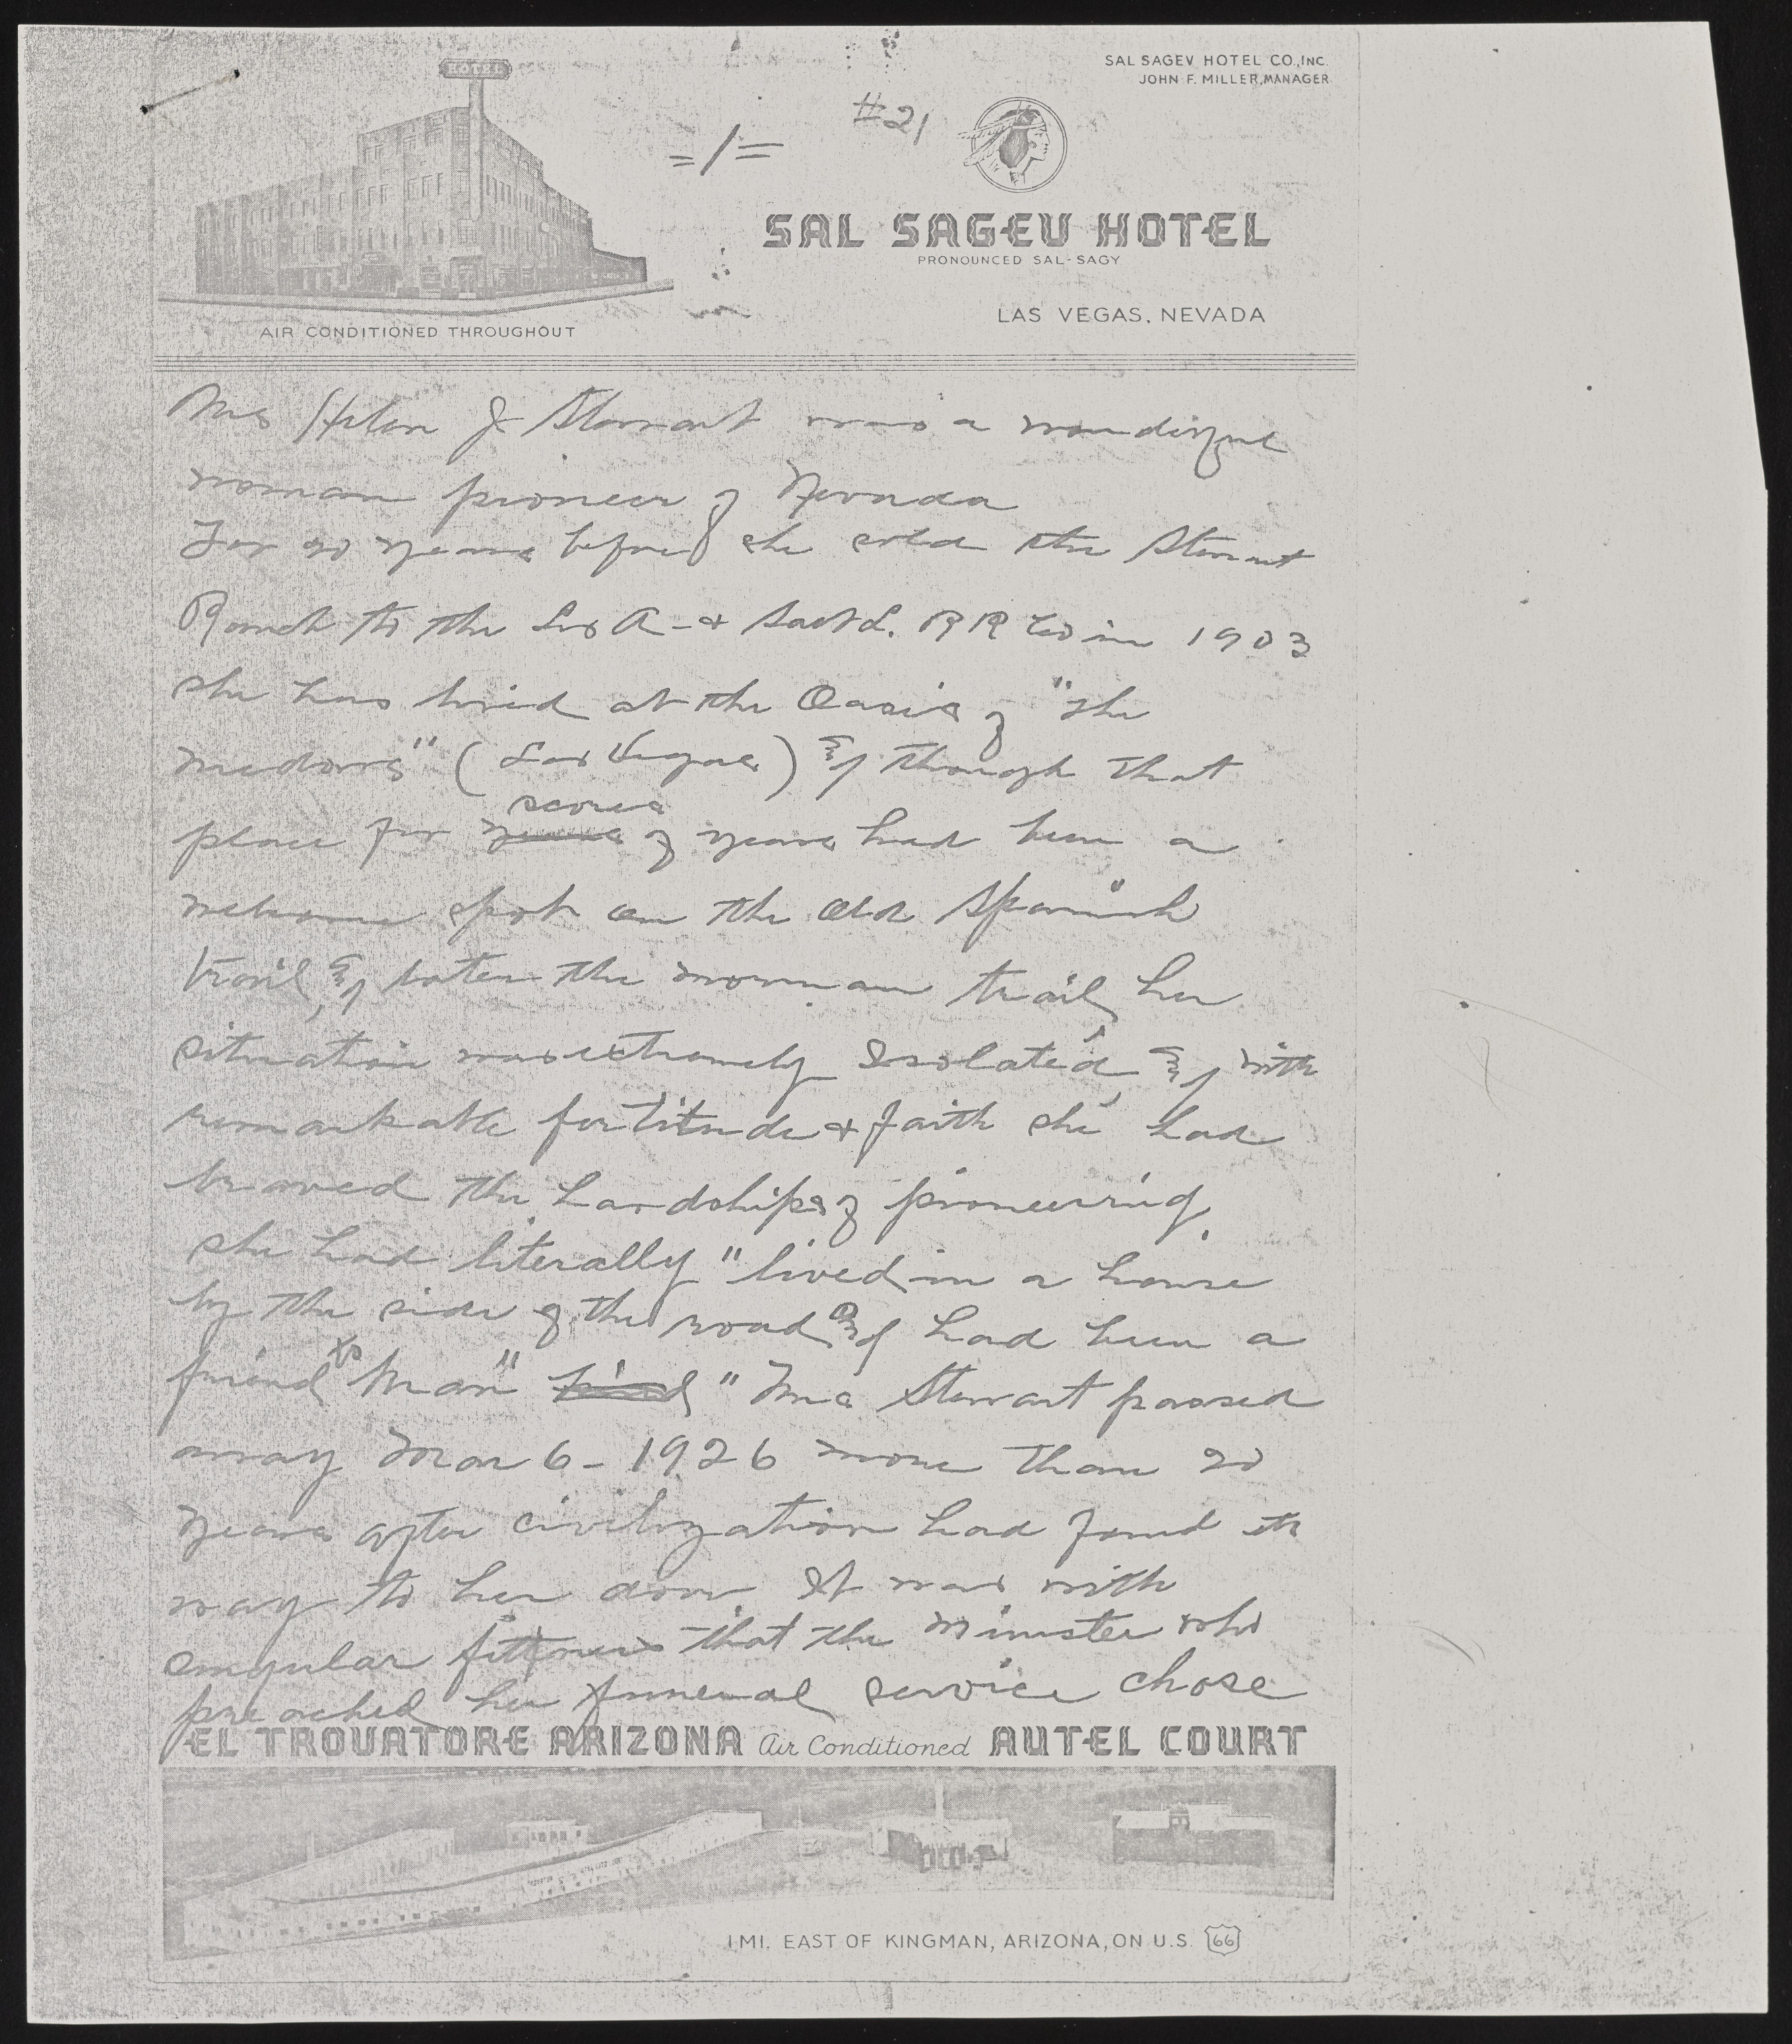 HOTEL
SAL SAGEV HOTEL CO., INC.
JOHN F. MILLER, MANAGER
#21
=1=
SAL SAGEV HOTEL
PRONOUNCED SAL-SAGY
LAS VEGAS, NEVADA
AIR CONDITIONED THROUGHOUT
Mrs Helen J Stewart was a wonderful
woman pioneer of Nevada
For 20 years before she sold the Stewart
Ranch to the Los A- & Salt L. RR Co in 1903
she has lived at the Oasis of "The
Medows" (Las Vegas) & though that
scores
place for years of years had been a
welcome spot on the old Spanish
trail, & later the mormon trail, her
situation was extremely Isolated, & with
remarkable fortitude & faith she had
braved the hardships of pioneering,
she had literally "lived in a house
by the side of the road and had been a
friend to Man" kind " Mrs Stewart passed
away Mar 6 - 1926 more than 20
years after civilization had found its
way to her door. It was with
singular fittness that the Minister who
preached her funeral service chose
EL TROVATORE ARIZONA Air Conditioned AUTEL COURT
1 MI. EAST OF KINGMAN, ARIZONA, ON U.S. 66